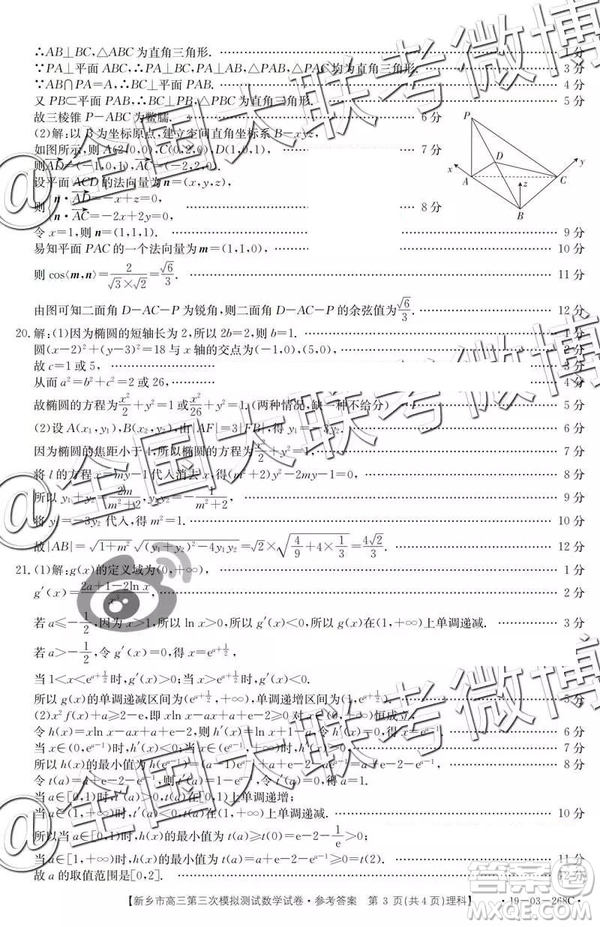 ∴AB⊥BC,△ABC为直角三角形. 1分
∵PA⊥平面ABC,∴PA⊥BC,PA⊥AB,△PAB,△PAC均为直角三角形. 3分
∵AB∩PA=A,∴BC⊥平面PAB. 4分
又PB⊂平面PAB,∴BC⊥PB,△PBC为直角三角形. 5分
故三棱锥P-ABC为鳖臑. 6分
(2)解:以B为坐标原点,建立空间直角坐标系B-xyz,
如图所示,则A(2,0,0),C(0,2,0),D(1,0,1), 7分
则AD=(-1,0,1),AC=(-2,2,0).
设平面ACD的法向量为n=(x,y,z),
则{n·AD=-x+z=0, n·AC=-2x+2y=0, 8分
令x=1,则n=(1,1,1). 9分
易知平面PAC的一个法向量为m=(1,1,0), 10分
则cos⟨m,n⟩=2/(√3×√2)=√6/3. 11分
由图可知二面角D-AC-P为锐角,则二面角D-AC-P的余弦值为√6/3. 12分
P
D
A
B
C
x
y
z
20.解:(1)因为椭圆的短轴长为2,所以2b=2,则b=1. 1分
圆(x-2)²+(y-3)²=18与x轴的交点为(-1,0),(5,0), 2分
故c=1或5, 3分
从而a²=b²+c²=2或26, 4分
故椭圆的方程为x²/2+y²=1或x²/26+y²=1.(两种情况,缺一种不给分) 5分
(2)设A(x₁,y₁),B(x₂,y₂),由|AF|=3|FB|,得y₁=-3y₂. 6分
因为椭圆的焦距小于4,所以椭圆的方程为x²/2+y²=1, 7分
将l的方程x=my-1代入消去x,得(m²+2)y²-2my-1=0, 8分
所以y₁+y₂=2m/(m²+2),y₁y₂=-1/(m²+2), 9分
将y₁=-3y₂代入,得m²=1, 10分
故|AB|=√(1+m²)√((y₁+y₂)²-4y₁y₂)=√2×√(4/9+4×1/3)=4√2/3. 12分
21.(1)解:g(x)的定义域为(0,+∞), 1分
g′(x)=(2a+1-2lnx)/ 2分
若a≤-1/2,因为x>1,所以lnx>0,所以g′(x)<0,所以g(x)在(1,+∞)上单调递减. 3分
若a>-1/2,令g′(x)=0,得x=e^(a+1/2),
当1<x<e^(a+1/2)时,g′(x)>0;当x>e^(a+1/2)时,g′(x)<0.
所以g(x)的单调递减区间为(e^(a+1/2),+∞),单调递增区间为(1,e^(a+1/2)). 5分
(2)x²f(x)+a≥2-e,即xlnx-ax+a+e-2≥0对x∈(0,+∞)恒成立,
令h(x)=xlnx-ax+a+e-2,则h′(x)=lnx+1-a,令h′(x)=0,得x=e^(a-1). 7分
当x∈(0,e^(a-1))时,h′(x)<0;当x∈(e^(a-1),+∞)时,h′(x)>0,
所以h(x)的最小值为h(e^(a-1))=a+e-2-e^(a-1). 8分
令t(a)=a+e-2-e^(a-1),则t′(a)=1-e^(a-1),令t′(a)=0,得a=1.
当a∈[0,1)时,t′(a)>0,t(a)在[0,1)上单调递增;
当a∈[1,+∞)时,t′(a)≤0,t(a)在[1,+∞)上单调递减. 10分
所以当a∈[0,1)时,h(x)的最小值为t(a)≥t(0)=e-2-1/e>0;
当a∈[1,+∞)时,h(x)的最小值为t(a)=a+e-2-e^(a-1)≥0=t(2). 11分
故a的取值范围是[0,2]. 12分
【新乡市高三第三次模拟测试数学试卷·参考答案 第3页(共4页)理科】
·19-03-268C·
@全国大联考微博
@全国大联考微博